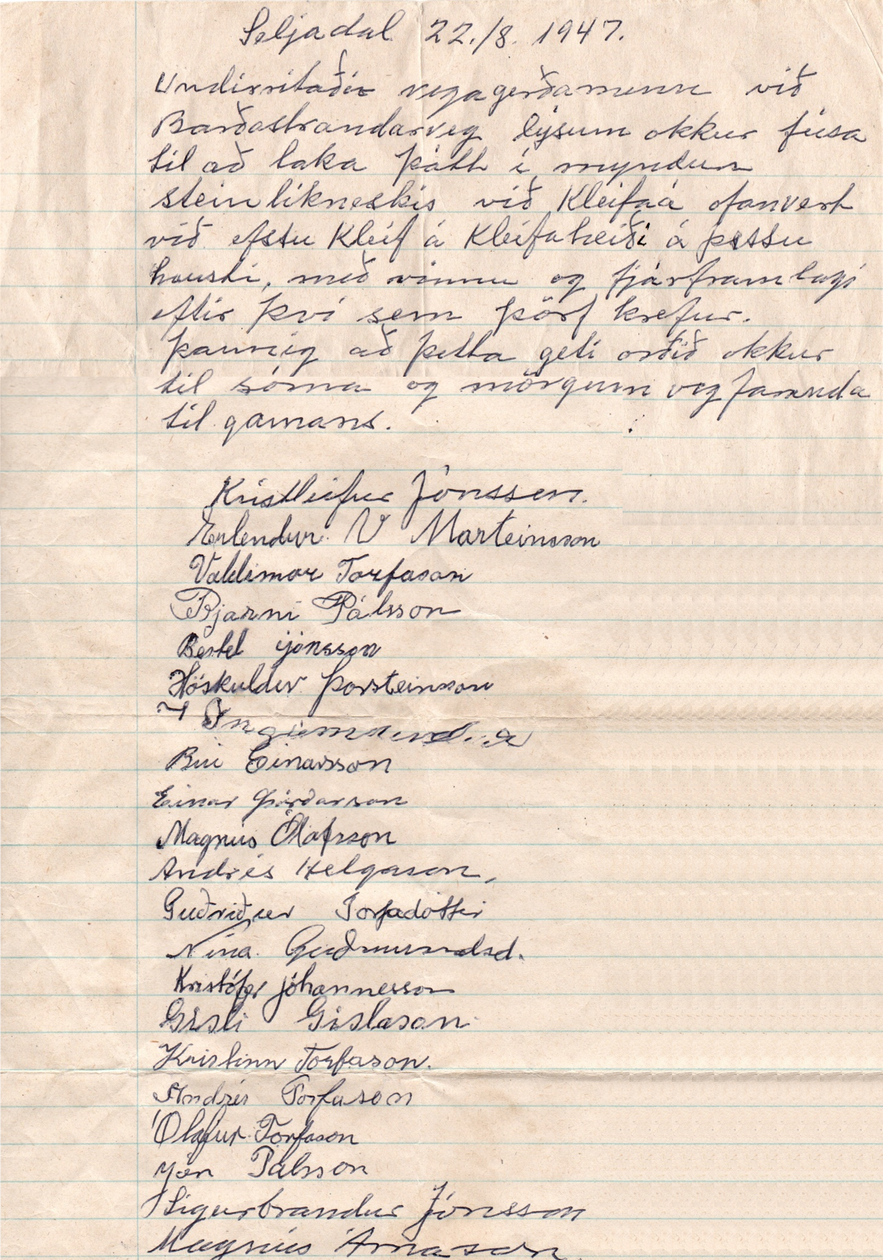 Seljadal 22./8. 1947.
Undirritaðir vegagerðamenn við
Barðastrandarveg lýsum okkur fúsa
til að taka þátt í myndun
steinlíkneskis við Kleifaá ofanvert
við efstu Kleif á Kleifaheiði á þessu
hausti, með vinnu og fjárframlagi
eftir því sem þörf krefur.
Þannig að þetta geti orðið okkur
til sóma og mörgum vegfaranda
til gamans.
Kristleifur Jónsson.
Erlendur V Marteinsson
Valdimar Torfason
Bjarni Pálsson
Jónsson
Höskuldur Þorsteinsson
Búi Einarsson
Einar Þórðarson
Magnús Ólafsson
Andrés Helgason,
Guðríður Torfadóttir
Nína Guðmundsd.
Kristófer Jóhannesson
Gísli Gíslason
Kristinn Torfason.
Andrés Torfason
Ólafur Torfason
Jón Pálsson
Sigurbrandur Jónsson
Magnús Árnason